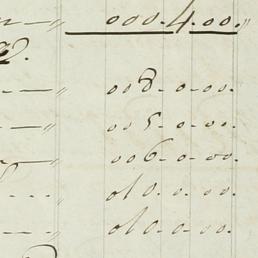 — 〃 000.4.00. 〃
— 〃 008-0-00.
— 〃 005-0-00.
— 〃 006-0-00.
- - - 〃 010.-0.-00.
- - — 〃 010.-0.-00.